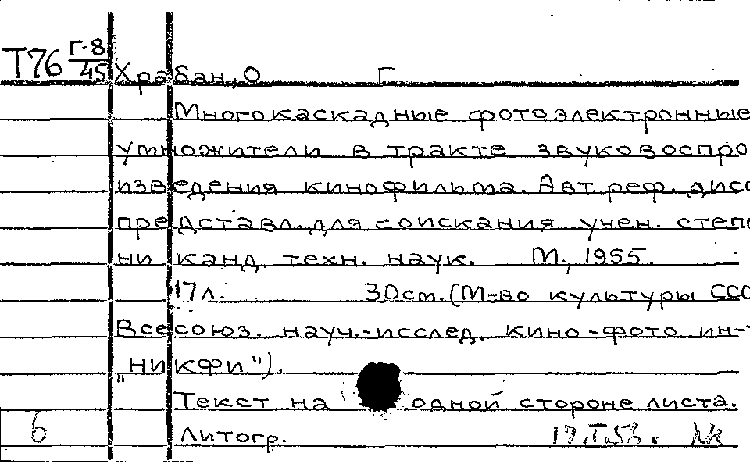 Т76 Г-8/45 Храбан, О Г
Многокаскадные фотоэлектронные
умножители в тракте звуковоспро
изведения кинофильма. Авт. реф. дисс
представл. для соискания учен. степе
ни канд. техн. наук. М., 1955.
17 л. 30 см. (М-во культуры ССС
Всесоюз. науч.-исслед. кино-фото ин-т
„НИКФИ").
Текст на одной стороне листа.
6 Литогр.